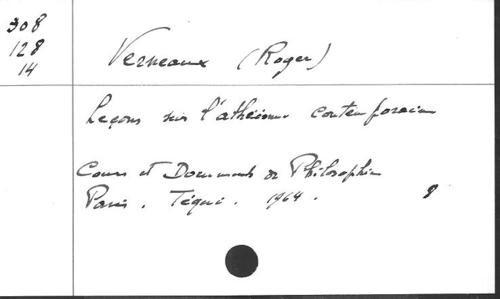 308
128
14
Verneaux (Roger)
Leçons sur l'athéisme contemporain
Cours et Documents de Philosophie
Paris. Téqui. 1964. 8